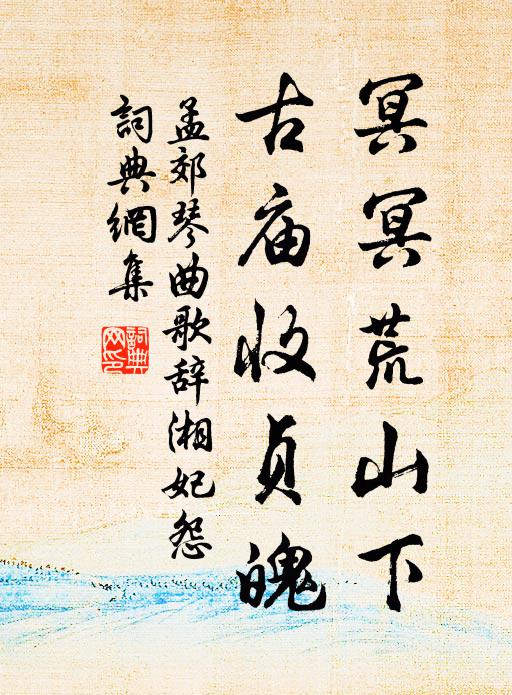 冥冥荒山下
古庙收贞魄
孟郊琴曲歌辞湘妃怨
詞典網集
詞典网印